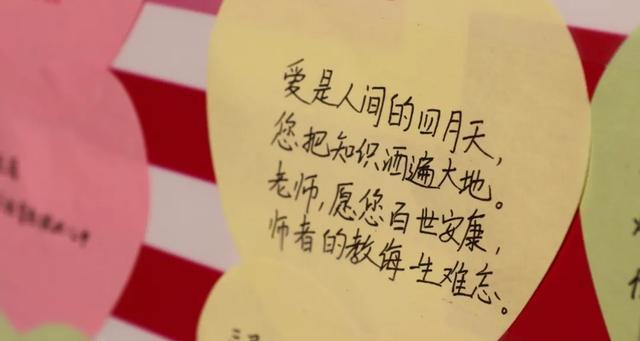 爱是人间的四月天，
您把知识洒遍大地。
老师，愿您百世安康，
师者的教悔一生难忘。